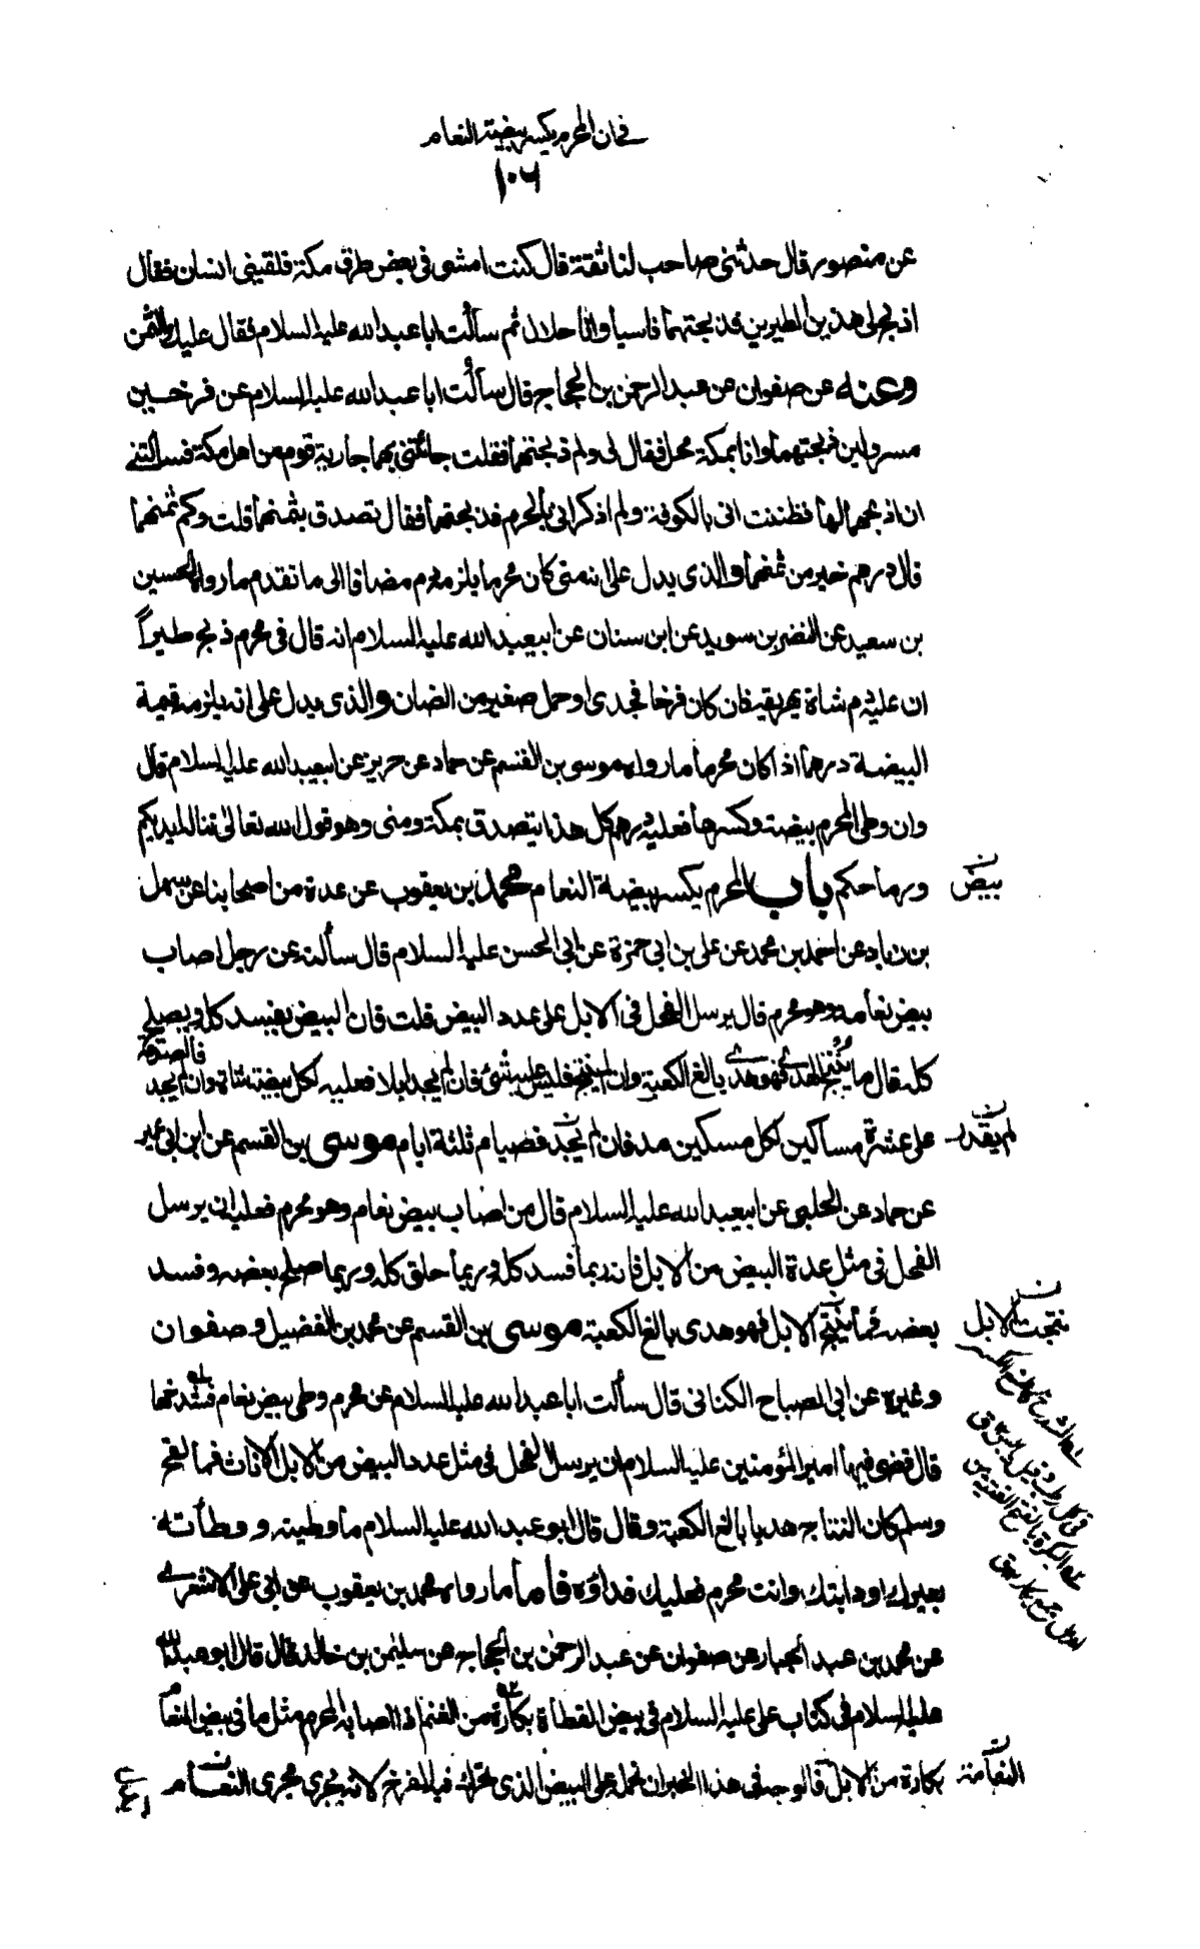 في ان المحرم يكسر بيضة النعام
١٠٦
عن منصور قال حدثني صاحب لنا ثقة قال كنت امشى في بعض طرق مكة فلقيني انسان فقال
اذبح لي هذين الطيرين فذبحتهما ناسيا وانا حلال ثم سألت ابا عبد الله عليه السلام فقال عليك الثمن
وعنه عن صفوان عن عبد الرحمن بن الحجاج قال سألت ابا عبد الله عليه السلام عن فرخين
مسرولين ذبحتهما وانا بمكة محل فقال لى ولم ذبحتهما فقلت جائتنى بهما جارية قوم من اهل مكة فسألتنى
ان اذبحهما لها فظننت انى بالكوفة ولم اذكر انى بالحرم فذبحتهما فقال تصدق بثمنهما قلت وكم ثمنهما
قال درهم خير من ثمنهما والذى يدل على انه متى كان محرما يلزمه دم مضافا الى ما تقدم ما رواه الحسين
بن سعيد عن النضر بن سويد عن ابن سنان عن ابيعبد الله عليه السلام انه قال فى محرم ذبح طيراً
ان عليه دم شاة يهريقه فان كان فرخا فجدى او حمل صغير من الضان والذى يدل على انه يلزمه قيمة
البيضة درهما اذا كان محرما ما رواه موسى بن القسم عن حماد عن حريز عن ابيعبد الله عليه السلام قال
وان وطى المحرم بيضة وكسرها فعليه درهم كل هذا يتصدق بمكة ومنى وهو قول الله تعالى تناله ايديكم
ورماحكم باب المحرم يكسر بيضة النعام محمد بن يعقوب عن عدة من اصحابنا عن سهل
بيض
بن زياد عن احمد بن محمد عن على بن ابى حمزة عن ابى الحسن عليه السلام قال سألته عن رجل اصاب
بيض نعامة وهو محرم قال يرسل الفحل فى الابل على عدد البيض قلت فان البيض يفسد كله ويصلح
كله قال ما ينتج الهدى فهو هدى بالغ الكعبة وان لم ينتج فليس عليه شئ فان لم يجد ابلا فعليه لكل بيضة شاة وان لم يجد
فالصدقة
على عشرة مساكين لكل مسكين مد فان لم يجد فصيام ثلثة ايام موسى بن القسم عن ابن ابى عمير
لم يقدر
عن حماد عن الحلبى عن ابيعبد الله عليه السلام قال من اصاب بيض نعام وهو محرم فعليه ان يرسل
الفحل فى مثل عدة البيض من الابل فانه ربما فسد كله وربما خلق كله وربما صلح بعضه وفسد
بعضه فما ينتج الابل فهو هدى بالغ الكعبة موسى بن القسم عن محمد بن الفضيل وصفوان
نتجت الابل
وغيره عن ابى الصباح الكنانى قال سألت ابا عبد الله عليه السلام عن محرم وطى بيض نعام فشدخها
قال قضى فيها امير المؤمنين عليه السلام ان يرسل الفحل فى مثل عدد البيض من الابل الاناث فما لقح
وسلم كان النتاج هديا بالغ الكعبة وقال قال ابو عبد الله عليه السلام ما وطيته ووطأته
بعيرك او دابتك وانت محرم فعليك فداؤه فأما ما رواه محمد بن يعقوب عن ابى على الاشعرى
عن محمد بن عبد الجبار عن صفوان عن عبد الرحمن بن الحجاج عن سليمن بن خالد قال قال ابو عبد الله
عليه السلام فى كتاب على عليه السلام فى بيض القطاة بكارة من الغنم اذا اصابه المحرم مثل ما فى بيض النعام
بكارة من الابل فالوجه فى هذا الخبر ان نحمله على البيض الذى تحرك فيه الفرخ لانه يجرى مجرى النعام
النعامة